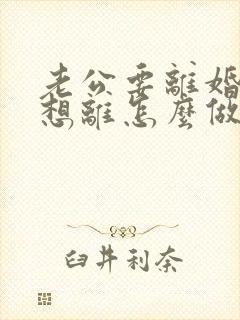 老公要離婚
想離怎麼做
臼井利奈